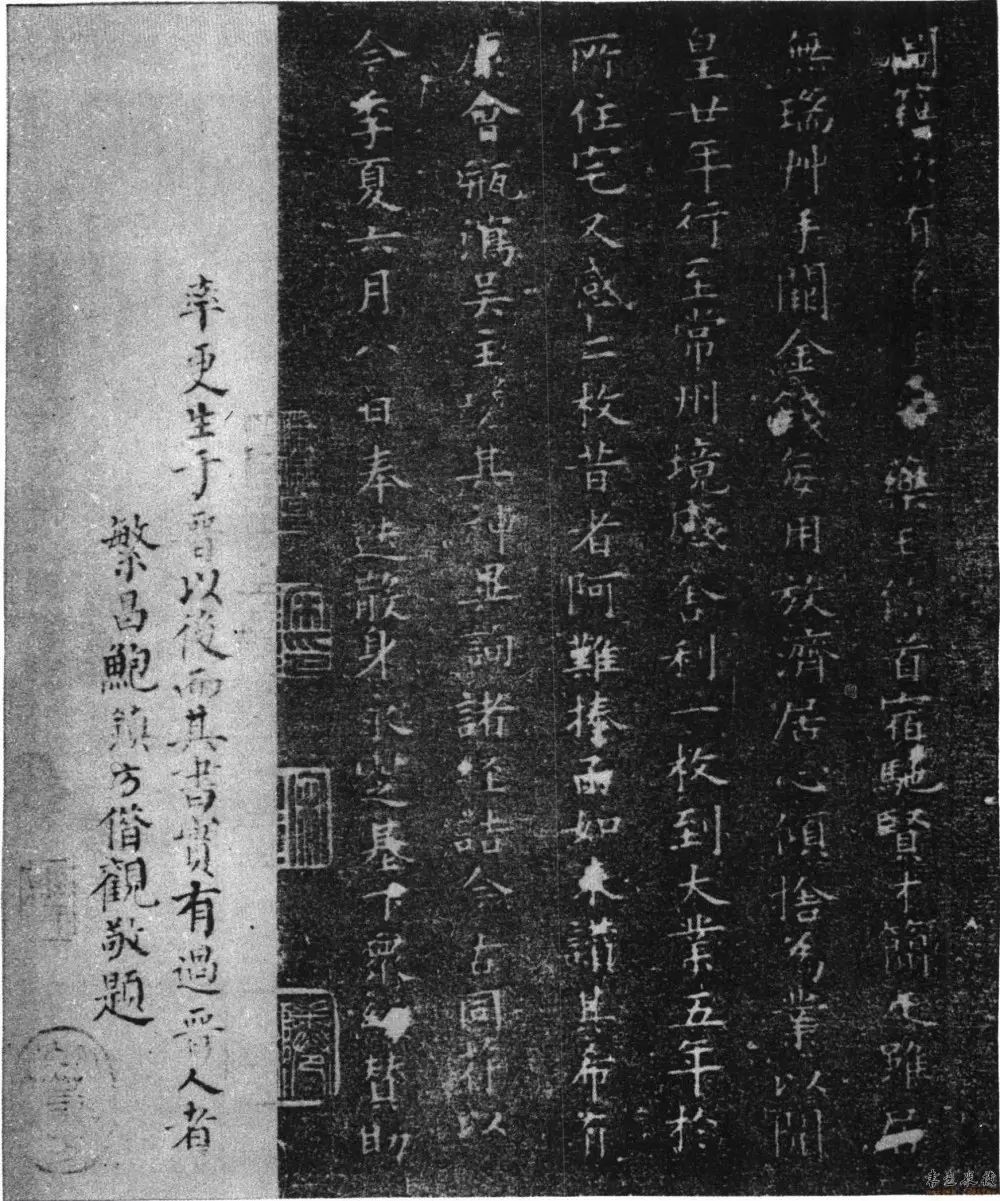 藥王 首宿馳賢才簡是雖居
無瑞艸手闕金錢每用放濟居心傾捨為業以開
皇廿年行至常州境感舍利一枚到大業五年於
所住宅又感二枚昔者阿難捧函如來讚其希有
康會瓶瀉吴主 其神異詢諸經誥今古同符以
今季夏六月八日奉送散身永 基十眾 贊助
率更生于晉以後而其書實有過晉人者
繁昌鮑鎮方借觀敬題